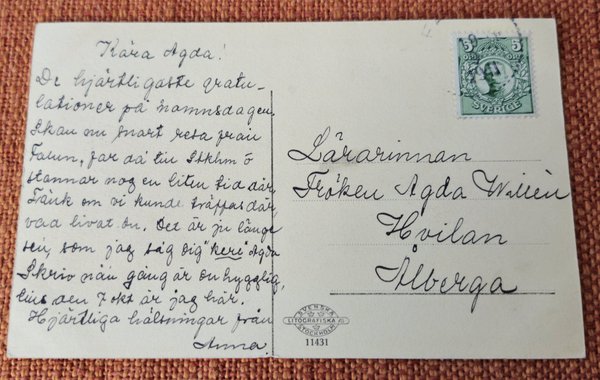 Kära Agda!
De hjärtligaste gratu-
lationer på namnsdagen.
Skall nu snart resa från
Falun, far då till Sthlm o
stannar nog en liten tid där,
Tänk om vi kunde träffas där,
vad livat bv. Det är ju länge
sen, som jag såg dig "kere" Agda
Skriv nån gång är du hygglig,
tills den 7 okt är jag här.
Hjärtliga hälsningar från
Anna.
5 5
SVERIGE
Lärarinnan
Fröken Agda Willén
Hvilan
Ålberga
SVENSKA
LITOGRAFISKA
STOCKHOLM
11431